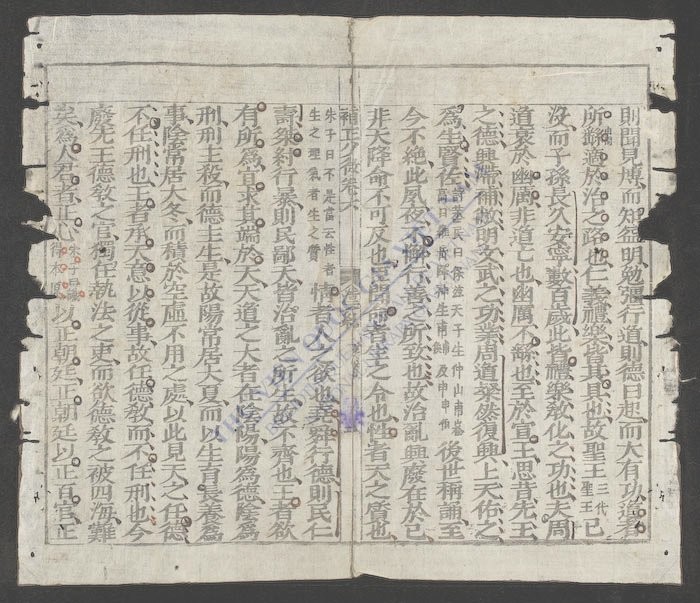 則聞見博而知益明勉彊行道則德日起而大有功道者
所繇適於治之路也仁義禮樂皆其具也故聖王三代聖王已
沒而子孫長久安寧數百歲此皆禮樂教化之功也夫周
道衰於幽厲非道亡也幽厲不繇也至於宣王思昔先王
之德興滯補敝明文武之功業周道粲然復興上天佑之
爲生賢佐詩烝民曰保茲天子生仲山甫嵩高曰維岳降神生甫及申後世稱誦至
今不絕此夙夜不懈行善之所致也故治亂興廢在於己
非天降命不可反也臣聞命者天之令也性者天之質也
補正少微卷六
朱子曰不是當云性者生之理氣者生之質情者人之欲也堯舜行德則民仁
壽桀紂行暴則民鄙夭皆治亂之所生故不齊也王者欲
有所爲宜求其端於天天道之大者在陰陽陽爲德陰爲
刑刑主殺而德主生是故陽常居大夏而以生育長養爲
事陰常居大冬而積於空虛不用之處以此見天之任德
不任刑也王者承天意以從事故任德教而不任刑也今
廢先王德教之官獨任執法之吏而欲德教之被四海難
矣爲人君者正心以正朝廷正朝廷以正百官正